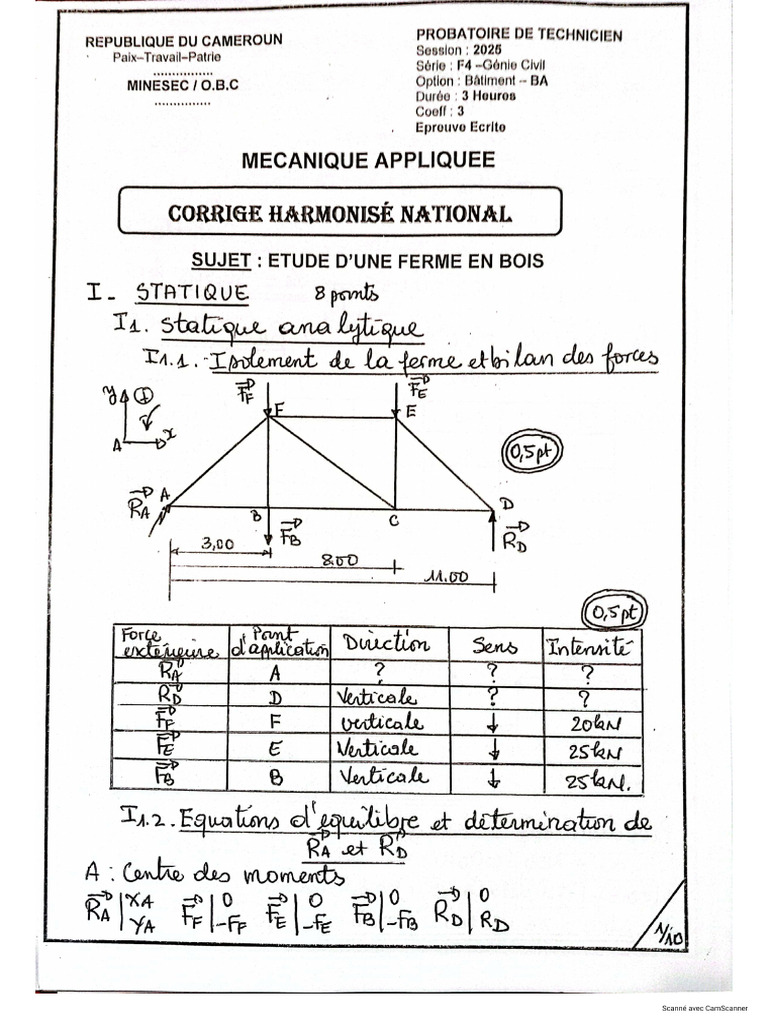 REPUBLIQUE DU CAMEROUN
Paix–Travail–Patrie
................
MINESEC / O.B.C
...............
PROBATOIRE DE TECHNICIEN
Session : 2025
Série : F4 –Génie Civil
Option : Bâtiment – BA
Durée : 3 Heures
Coeff : 3
Epreuve Ecrite
MECANIQUE APPLIQUEE
CORRIGE HARMONISÉ NATIONAL
SUJET : ETUDE D'UNE FERME EN BOIS
I - STATIQUE 8 points
I1. Statique analytique
I1.1.- Isolement de la ferme et bilan des forces
y + A x
F⃗F F F⃗E E
0,5pt
R⃗A A B F⃗B C D R⃗D
3,00
8.00
11.00
0,5pt
Force extérieure | Point d'application | Direction | Sens | Intensité
R⃗A | A | ? | ? | ?
R⃗D | D | Verticale | ? | ?
F⃗F | F | verticale | ↓ | 20kN
F⃗E | E | Verticale | ↓ | 25kN
F⃗B | B | Verticale | ↓ | 25kN.
I1.2. Equations d'equilibre et détermination de
R⃗A et R⃗D
A : Centre des moments
R⃗A | XA YA F⃗F | 0 -FF F⃗E | 0 -FE F⃗B | 0 -FB R⃗D | 0 RD
1/10
Scanné avec CamScanner